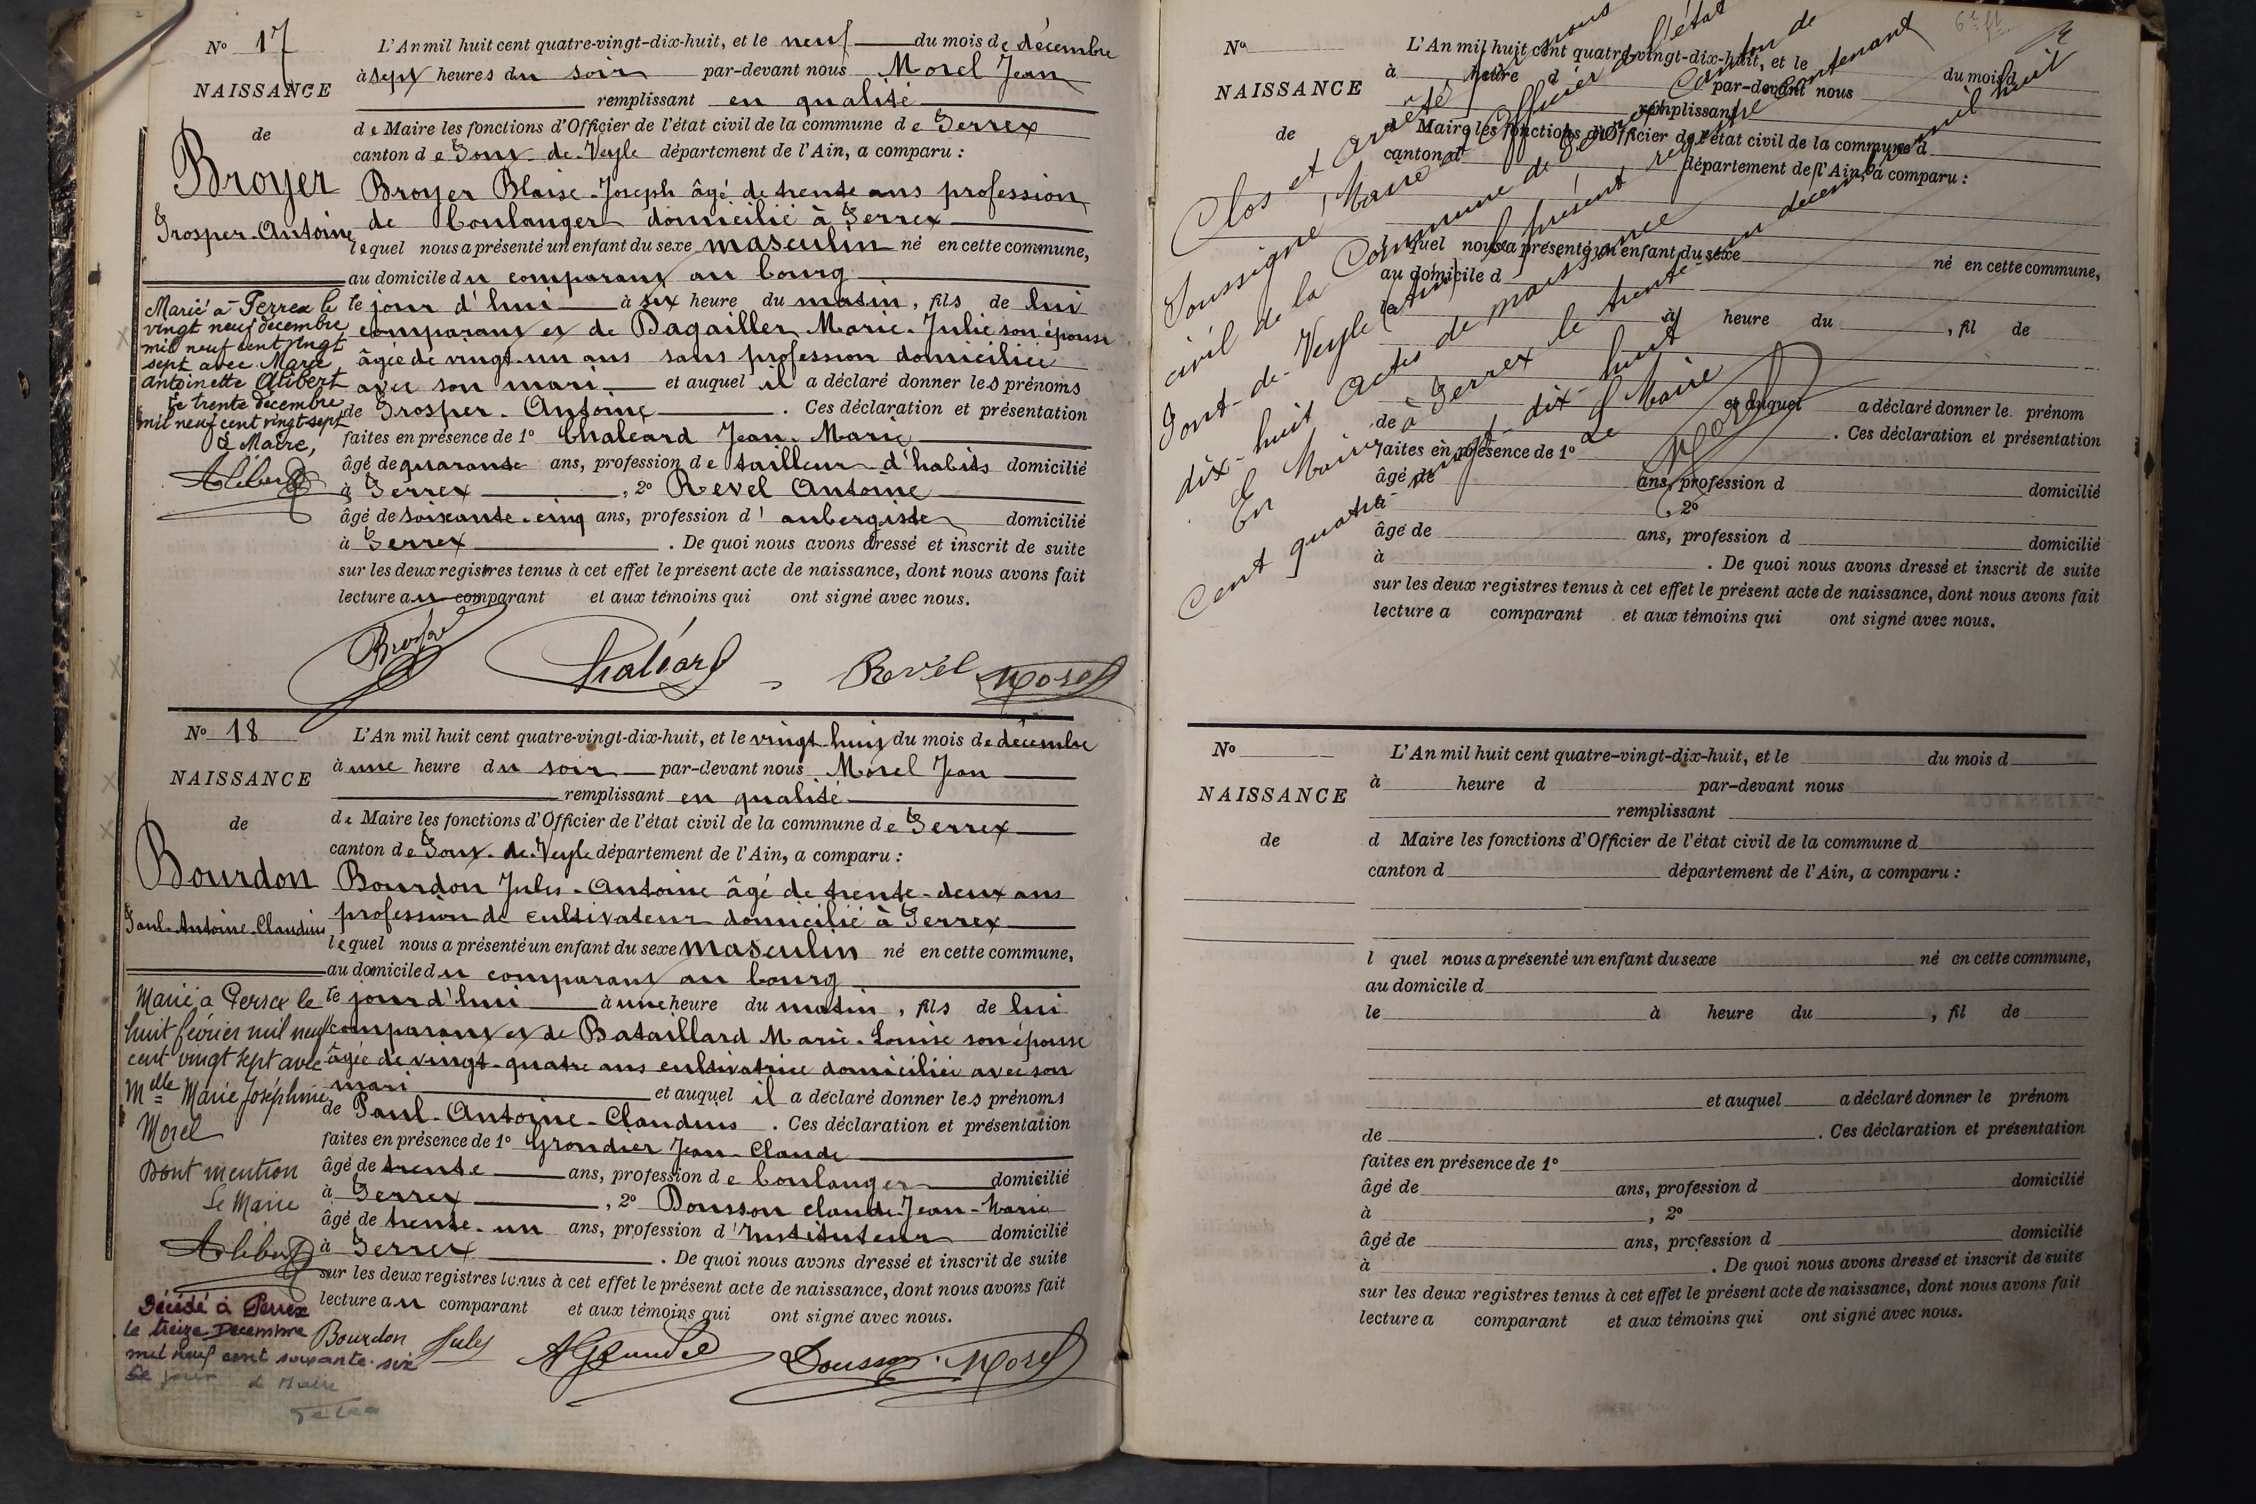 N° 17
NAISSANCE
de
Broyer
Prosper-Antoine
Marié à Perrex le
vingt neuf décembre
mil neuf cent vingt
sept avec Marie
antoinette Alibert
Le trente décembre
mil neuf cent vingt-sept
Le Maire,
Alibert
L'An mil huit cent quatre-vingt-dix-huit, et le neuf du mois de décembre
à sept heures du soir par-devant nous Morel Jean
remplissant en qualité
de Maire les fonctions d'Officier de l'état civil de la commune de Perrex
canton de Pont-de-Veyle département de l'Ain, a comparu :
Broyer Blaise-Joseph âgé de trente ans profession
de boulanger domicilié à Perrex
lequel nous a présenté un enfant du sexe masculin né en cette commune,
au domicile du comparant au bourg
le jour d'hui à six heure du matin, fils de lui
comparant et de Dagailler Marie-Julie son épouse
âgée de vingt-un ans sans profession domiciliée
avec son mari et auquel il a déclaré donner les prénoms
de Prosper-Antoine. Ces déclaration et présentation
faites en présence de 1° Chaléard Jean-Marie
âgé de quarante ans, profession de tailleur d'habits domicilié
à Perrex, 2° Revel Antoine
âgé de soixante-cinq ans, profession d'aubergiste domicilié
à Perrex. De quoi nous avons dressé et inscrit de suite
sur les deux registres tenus à cet effet le présent acte de naissance, dont nous avons fait
lecture au comparant et aux témoins qui ont signé avec nous.
Broyer Chaléard Revel Morel
N° 18
NAISSANCE
de
Bourdon
Paul-Antoine-Claudius
Marié à Perrex le
huit février mil neuf
cent vingt sept avec
Melle Marie Joséphine
Morel
Dont mention
Le Maire
Alibert
Décédé à Perrex
le treize Décembre
mil neuf cent soixante-six
Le Maire
L'An mil huit cent quatre-vingt-dix-huit, et le vingt-huit du mois de décembre
à une heure du soir par-devant nous Morel Jean
remplissant en qualité
de Maire les fonctions d'Officier de l'état civil de la commune de Perrex
canton de Pont-de-Veyle département de l'Ain, a comparu :
Bourdon Jules-Antoine âgé de trente-deux ans
profession de cultivateur domicilié à Perrex
lequel nous a présenté un enfant du sexe masculin né en cette commune,
au domicile du comparant au bourg
le jour d'hui à une heure du matin, fils de lui
comparant et de Bataillard Marie-Louise son épouse
âgée de vingt-quatre ans cultivatrice domiciliée avec son
mari et auquel il a déclaré donner les prénoms
de Paul-Antoine-Claudius. Ces déclaration et présentation
faites en présence de 1° Grondier Jean-Claude
âgé de trente ans, profession de boulanger domicilié
à Perrex, 2° Dousson Claude-Jean-Marie
âgé de trente-un ans, profession d'Instituteur domicilié
à Perrex. De quoi nous avons dressé et inscrit de suite
sur les deux registres tenus à cet effet le présent acte de naissance, dont nous avons fait
lecture au comparant et aux témoins qui ont signé avec nous.
Bourdon Jules Dousson Morel
N°
NAISSANCE
de
L'An mil huit cent quatre-vingt-dix-huit, et le du mois d
à heure d par-devant nous
remplissant
d Maire les fonctions d'Officier de l'état civil de la commune d
canton d département de l'Ain, a comparu :
l quel nous a présenté un enfant du sexe né en cette commune,
au domicile d
le à heure du , fil de
et auquel a déclaré donner le prénom
de . Ces déclaration et présentation
faites en présence de 1°
âgé de ans, profession d domicilié
à , 2°
âgé de ans, profession d domicilié
à . De quoi nous avons dressé et inscrit de suite
sur les deux registres tenus à cet effet le présent acte de naissance, dont nous avons fait
lecture a comparant et aux témoins qui ont signé avec nous.
Clos et arrêté par nous
soussigné, Maire et Officier de l'état
civil de la Commune de Perrex Canton de
Pont-de-Veyle (Ain) le présent registre contenant
dix-huit Actes de naissance
En Mairie à Perrex le trente-un décembre mil huit
cent quatre-vingt-dix-huit
Le Maire
Morel
N°
NAISSANCE
de
L'An mil huit cent quatre-vingt-dix-huit, et le du mois d
à heure d par-devant nous
remplissant
d Maire les fonctions d'Officier de l'état civil de la commune d
canton d département de l'Ain, a comparu :
l quel nous a présenté un enfant du sexe né en cette commune,
au domicile d
le à heure du , fil de
et auquel a déclaré donner le prénom
de . Ces déclaration et présentation
faites en présence de 1°
âgé de ans, profession d domicilié
à , 2°
âgé de ans, profession d domicilié
à . De quoi nous avons dressé et inscrit de suite
sur les deux registres tenus à cet effet le présent acte de naissance, dont nous avons fait
lecture a comparant et aux témoins qui ont signé avec nous.